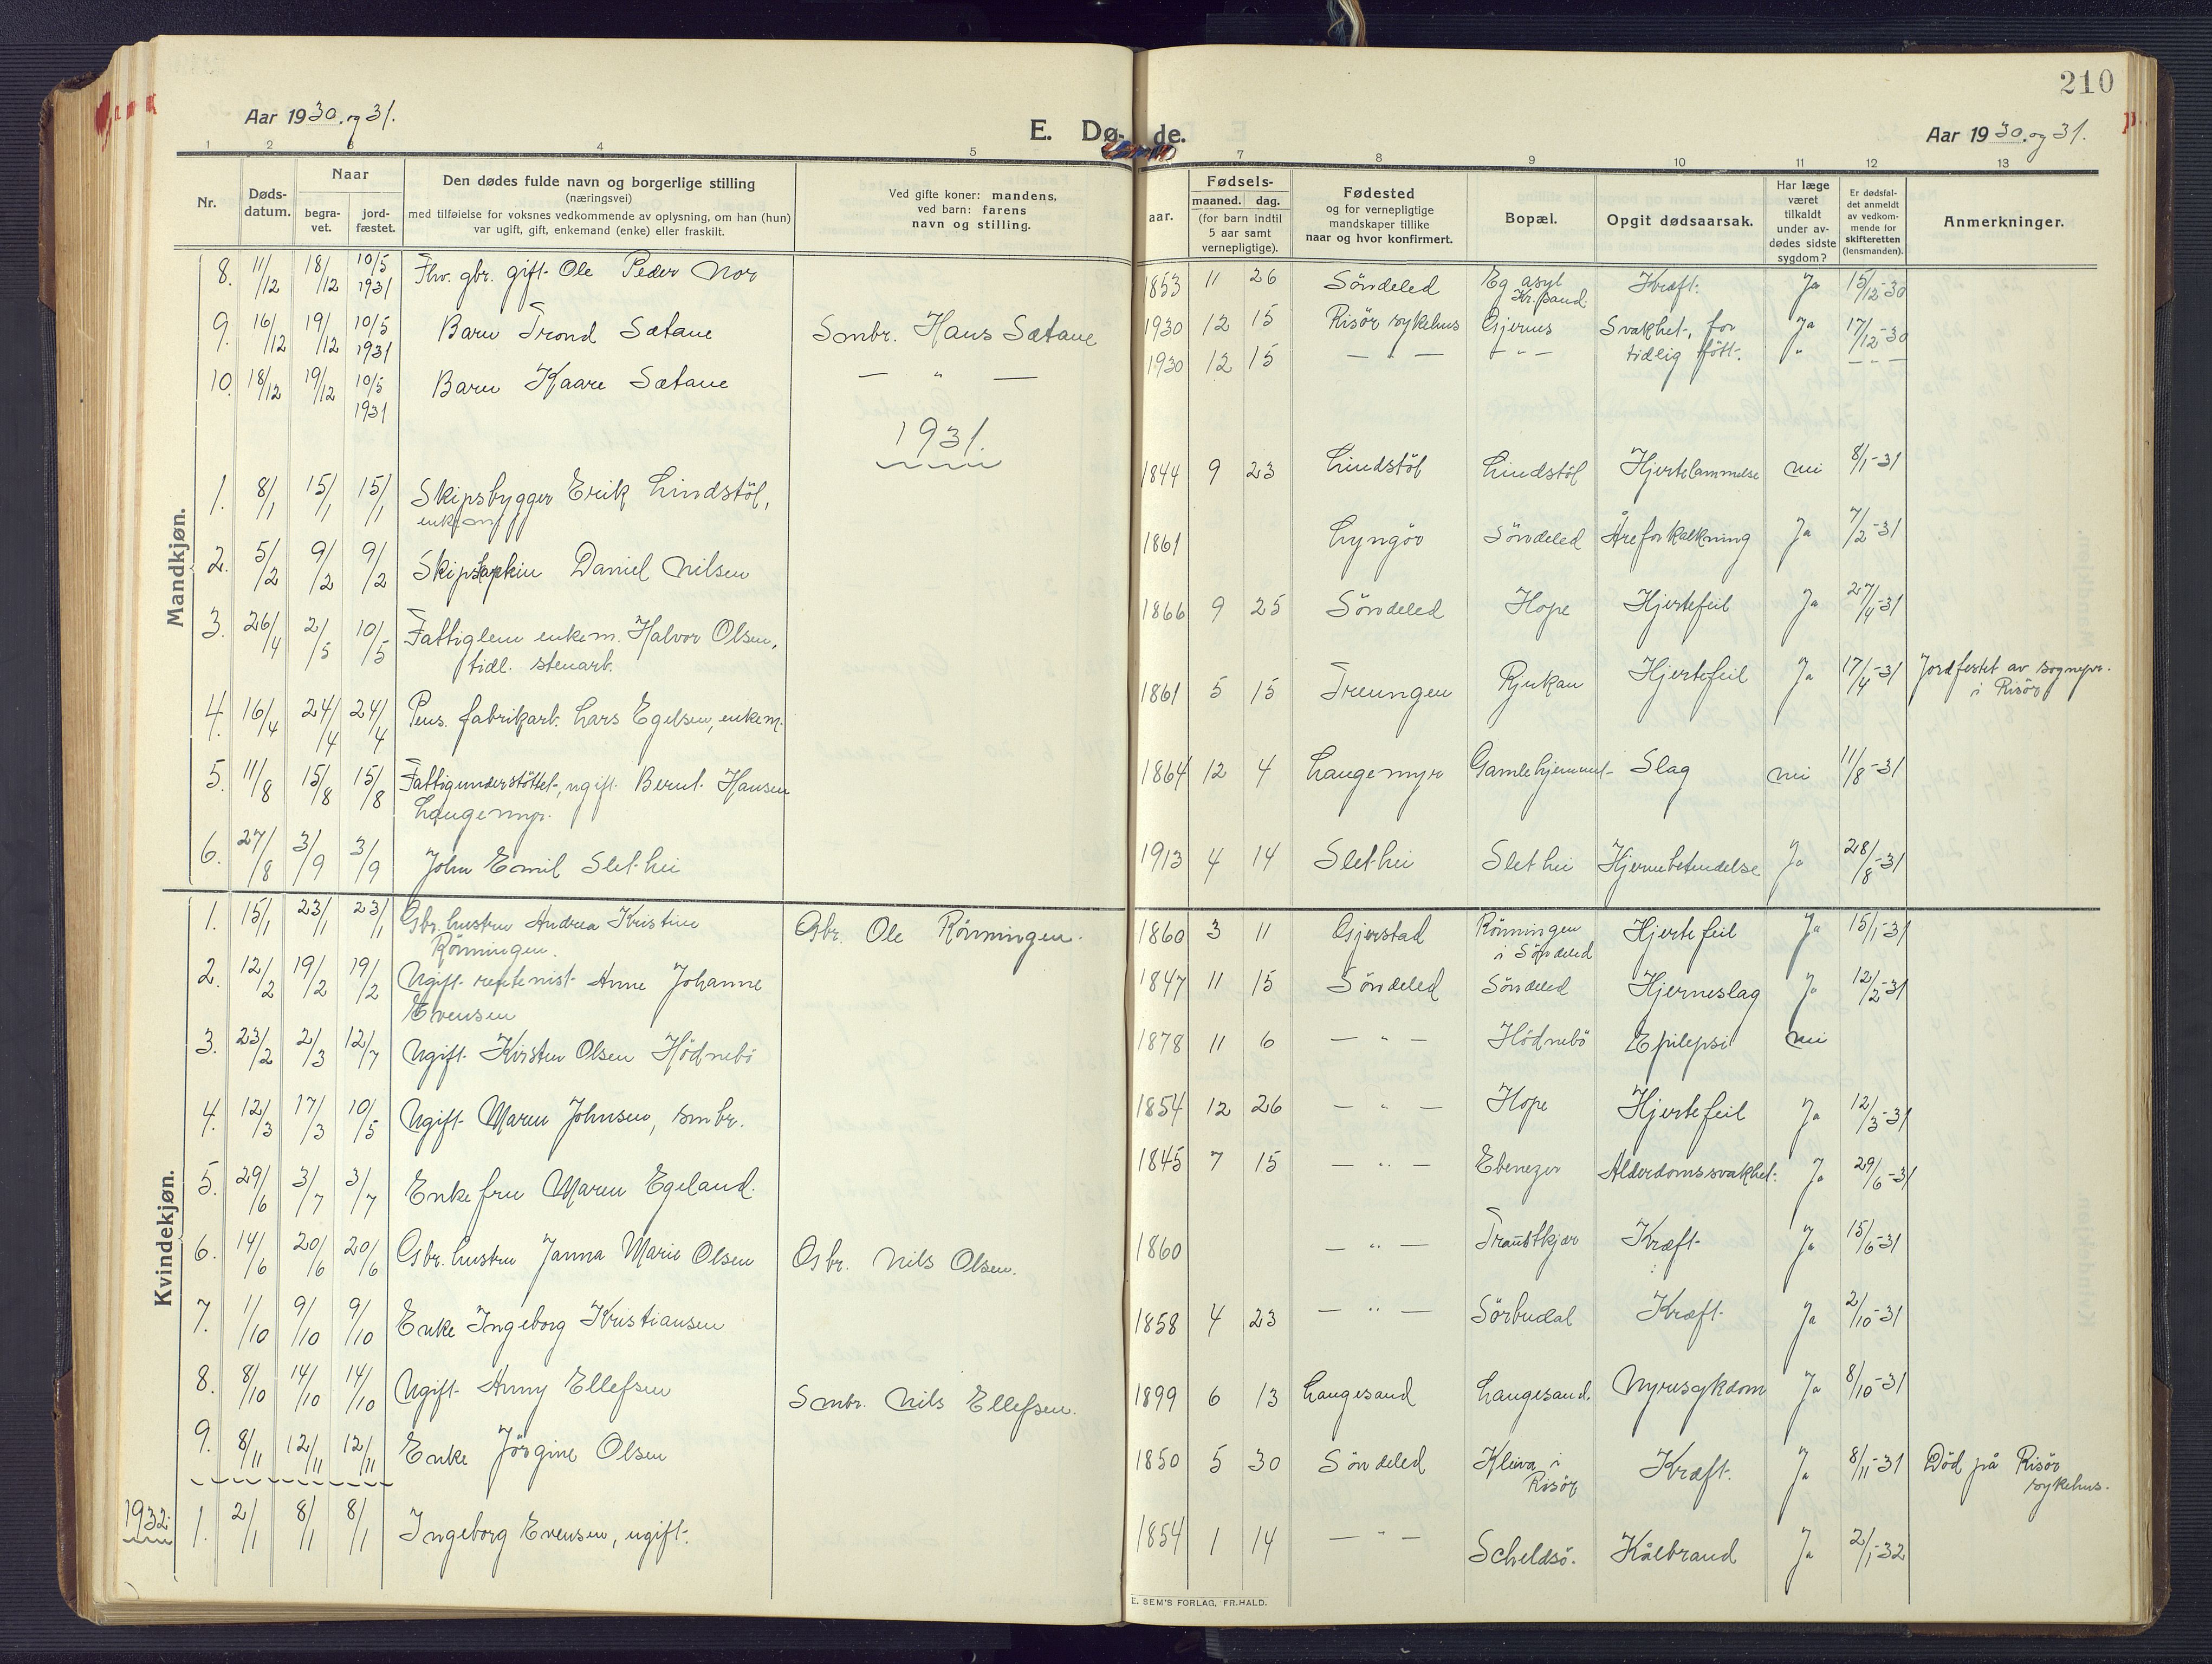 210
Aar 1930. og 31.
E. Dø- de.
Aar 1930. og 31.
1 2 3 4 5 7 8 9 10 11 12 13
Nr.
Døds-
datum.
Naar
begra-
vet.
jord-
fæstet.
Den dødes fulde navn og borgerlige stilling
(næringsvei)
med tilføielse for voksnes vedkommende av oplysning, om han (hun)
var ugift, gift, enkemand (enke) eller fraskilt.
Ved gifte koner: mandens,
ved barn: farens
navn og stilling.
aar.
Fødsels-
maaned. dag.
(for barn indtil
5 aar samt
vernepligtige).
Fødested
og for vernepligtige
mandskaper tillike
naar og hvor konfirmert.
Bopæl.
Opgit dødsaarsak.
Har læge
været
tilkaldt
under av-
dødes sidste
sygdom?
Er dødsfal-
det anmeldt
av vedkom-
mende for
skifteretten
(lensmanden).
Anmerkninger.
Mandkjøn.
8. 11/12 18/12 10/5 1931 Fhv. gbr. gift Ole Peder Nor 1853 11 26 Söndeled Eg asyl Kr.sand. Kræft. Ja 15/12-30
9. 16/12 19/12 10/5 1931 Barn Trond Sætane Smbr. Hans Sætane 1930 12 15 Risör sykehus Gjernes Svakhet, for Ja 17/12-30
10. 18/12 19/12 10/5 1931 Barn Kaare Sætane — " — 1930 12 15 — " — — " — tidlig född. " — — —
1931.
1. 8/1 15/1 15/1 Skipsbygger Erik Lindstöl, 1844 9 23 Lindstöl Lindstöl Hjertelammelse nei 8/1-31
enkem.
2. 5/2 9/2 9/2 Skipskaptein Daniel Nilsen 1861 Lyngör Söndeled Åreforkalkning Ja 7/2-31
3. 26/4 2/5 10/5 Fattiglem enkem. Halvor Olsen, 1866 9 25 Söndeled Hope Hjertefeil Ja 27/4-31
tidl. stenarb.
4. 16/4 24/4 24/4 Pens. fabrikarb. Lars Egelsen, enkem. 1861 5 15 Treungen Rjukan Hjertefeil Ja 17/4-31 Jordfestet av sognepr.
i Risör
5. 11/8 15/8 15/8 Fattigunderstöttet, ugift Bernt Hansen 1864 12 4 Langemyr Gamlehjemmet Slag nei 11/8-31
Langemyr.
6. 27/8 3/9 3/9 John Emil Slethei 1913 4 14 Slethei Slethei Hjernebetendelse Ja 28/8-31
Kvindekjøn.
1. 15/1 23/1 23/1 Gbr. hustru Andrea Kristine Gbr. Ole Rönningen. 1860 3 11 Gjerstad Rönningen Hjertefeil Ja 15/1-31
Rönningen. i Söndeled
2. 12/2 19/2 19/2 Ugift rentenist Anne Johanne 1847 11 15 Söndeled Söndeled Hjerneslag Ja 12/2-31
Evensen
3. 23/2 2/3 12/7 Ugift Kirsten Olsen Hödnebö 1878 11 6 — " — Hödnebö Epilepsi nei
4. 12/3 17/3 10/5 Ugift Maren Johnsen, smbr. 1854 12 26 — " — Hope Hjertefeil Ja 12/3-31
5. 29/6 3/7 3/7 Enkefru Maren Egeland. 1845 7 15 — " — Ebenezer Alderdomssvakhet. Ja 29/6-31
6. 14/6 20/6 20/6 Gbr. hustru Janna Marie Olsen Gbr. Nils Olsen. 1860 — " — Kræft Ja 15/6-31
7. 1/10 9/10 9/10 Enke Ingeborg Kristiansen 1858 4 23 — " — Sörbudal Kræft Ja 2/10-31
8. 8/10 14/10 14/10 Ugift Anny Ellefsen Smbr. Nils Ellefsen. 1899 6 13 Langesand Langesand. Nyresykdom Ja 8/10-31
9. 8/11 12/11 12/11 Enke Jörgine Olsen 1850 5 30 Söndeled Kleiva i Kræft. Ja 8/11-31 Död på Risör
Risör sykehus.
1932. 1. 2/1 8/1 8/1 Ingeborg Evensen, ugift. 1854 1 14 — " — Scheldsö. Kålbrand Ja 2/1-32
E. SEM'S FORLAG, FR.HALD.